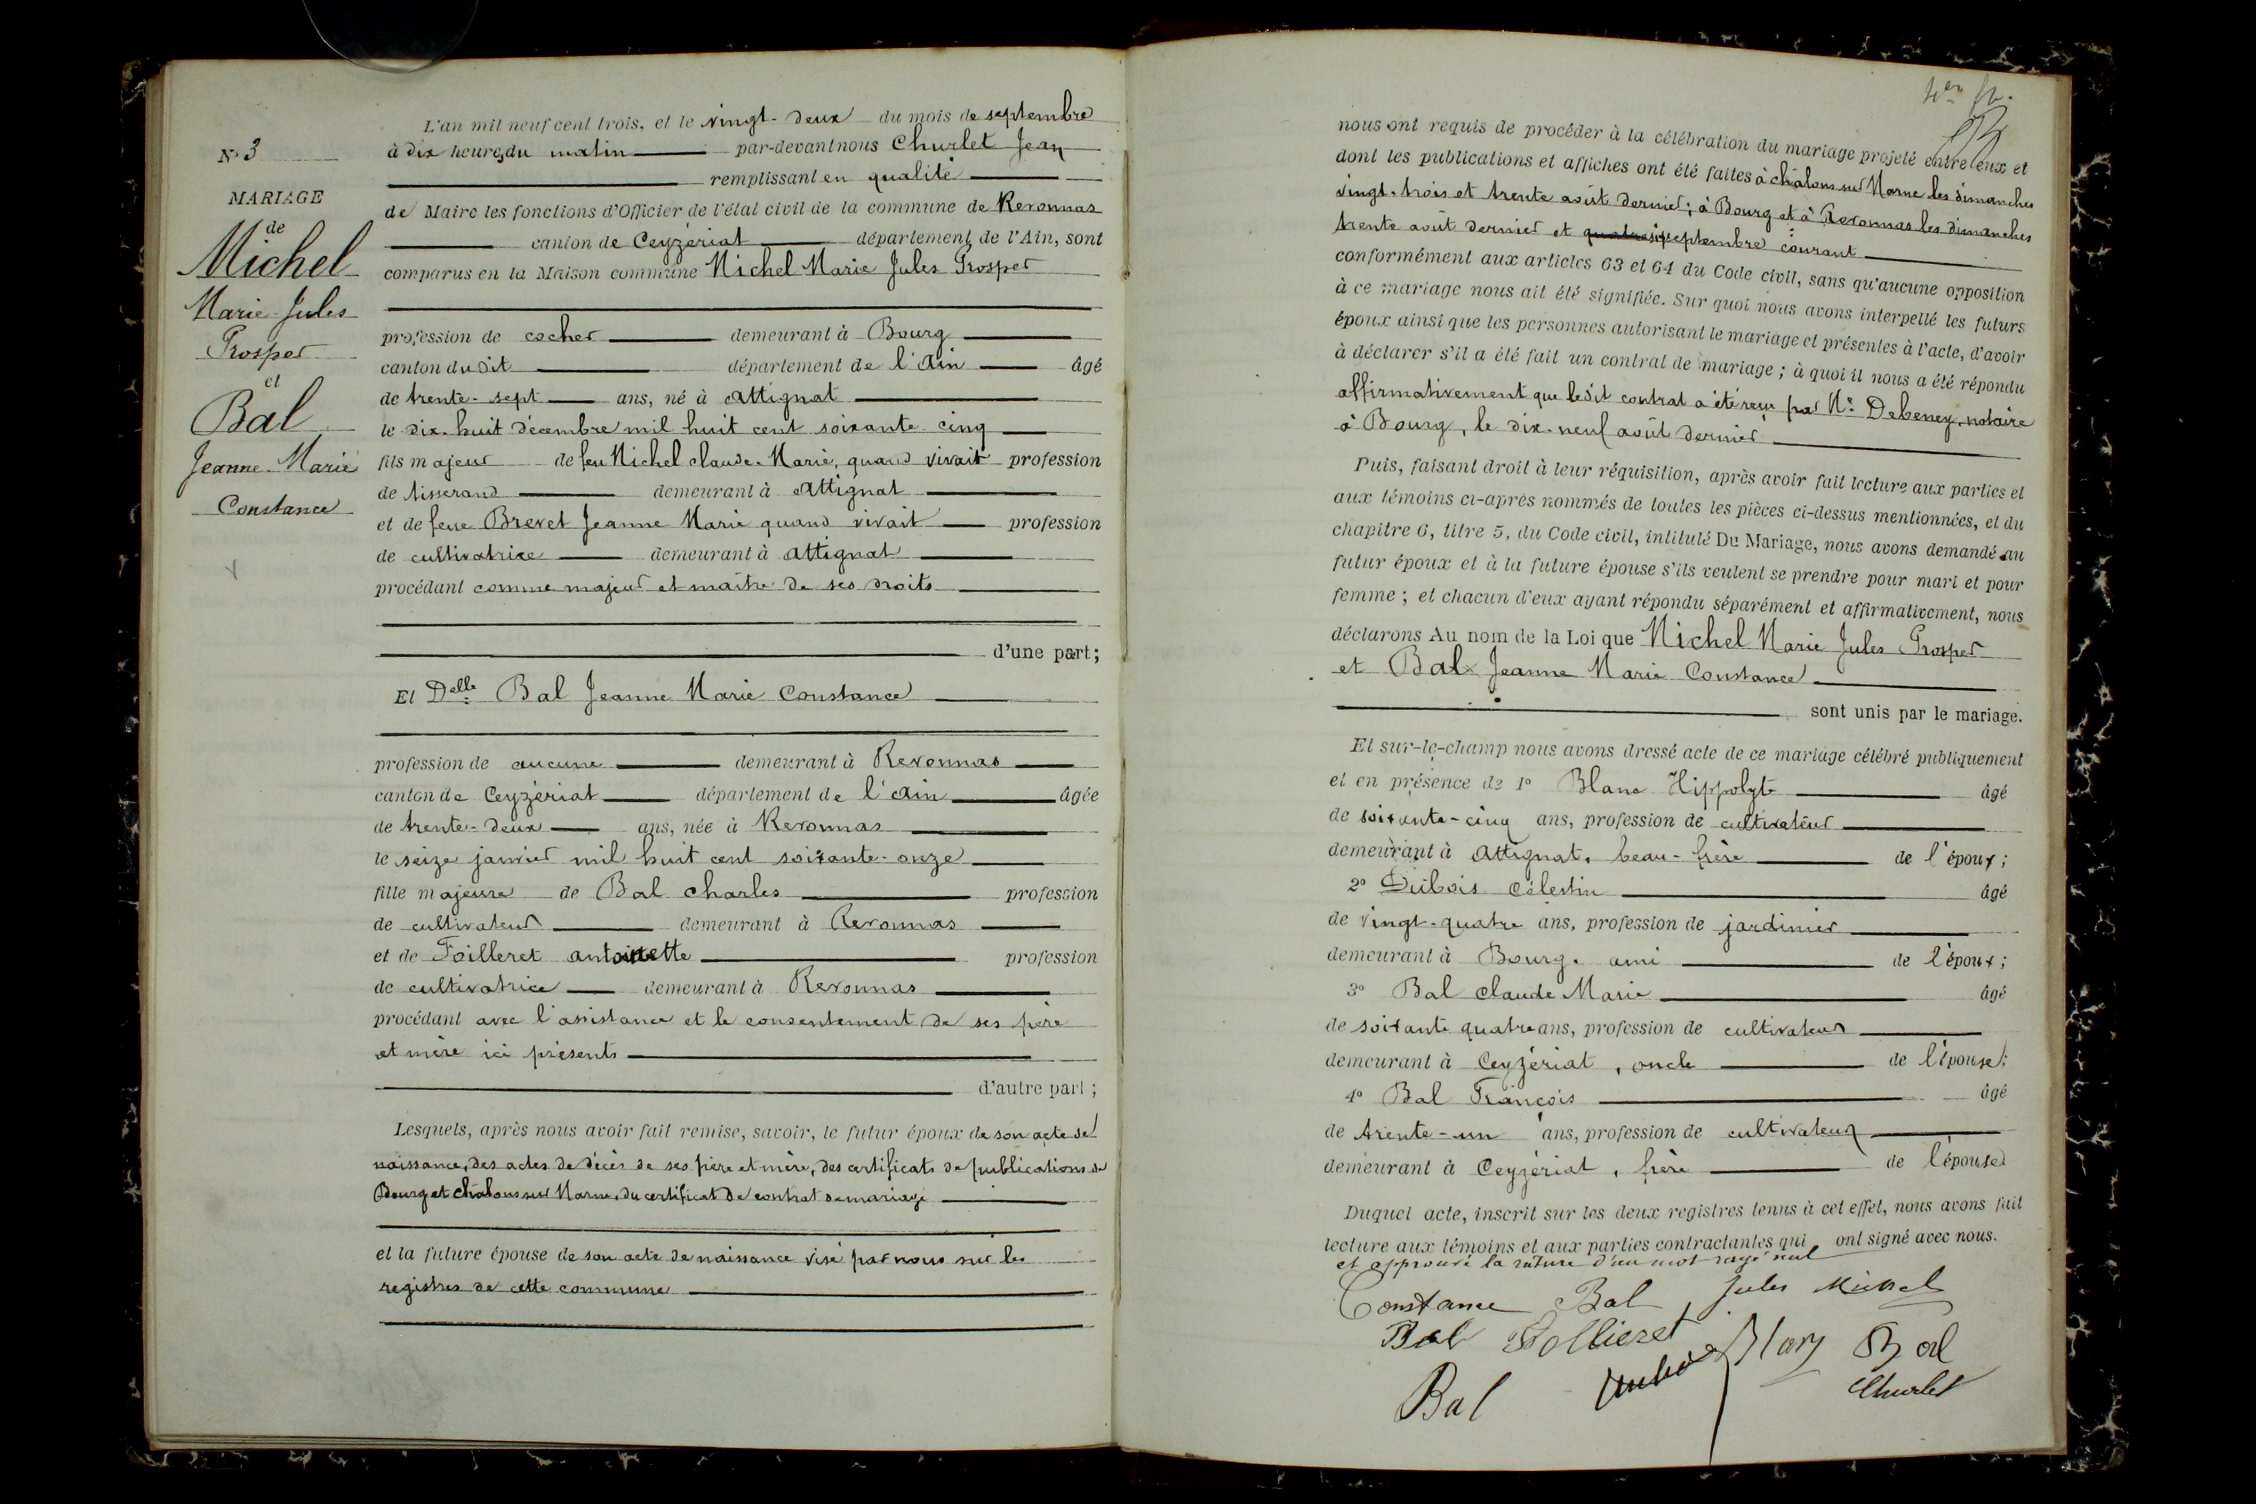 N° 3
MARIAGE
de
Michel
Marie Jules
Prosper
et
Bal
Jeanne Marie
Constance
L'an mil neuf cent trois, et le vingt-deux du mois de septembre
à dix heures du matin par-devant nous Churlet Jean
remplissant en qualité
de Maire les fonctions d'Officier de l'état civil de la commune de Revonnas
canton de Ceyzériat département de l'Ain, sont
comparus en la Maison commune Michel Marie Jules Prosper
profession de cocher demeurant à Bourg
canton du dit département de l'Ain âgé
de trente-sept ans, né à Attignat
le dix-huit décembre mil huit cent soixante-cinq
fils majeur de feu Michel Claude-Marie, quand vivait profession
de tisserand demeurant à Attignat
et de feue Brevet Jeanne Marie quand vivait profession
de cultivatrice demeurant à Attignat
procédant comme majeur et maître de ses droits
d'une part;
Et Delle Bal Jeanne Marie Constance
profession de aucune demeurant à Revonnas
canton de Ceyzériat département de l'Ain âgée
de trente-deux ans, née à Revonnas
le seize janvier mil huit cent soixante-onze
fille majeure de Bal Charles profession
de cultivateur demeurant à Revonnas
et de Foilleret antoinette profession
de cultivatrice demeurant à Revonnas
procédant avec l'assistance et le consentement de ses père
et mère ici présents
d'autre part;
Lesquels, après nous avoir fait remise, savoir, le futur époux de son acte de
naissance, des actes de décès de ses père et mère, des certificats de publications de
Bourg et Chalons sur Marne, du certificat de contrat de mariage
et la future épouse de son acte de naissance visé par nous sur les
registres de cette commune
nous ont requis de procéder à la célébration du mariage projeté entre eux et
dont les publications et affiches ont été faites à Châlons sur Marne les dimanches
vingt-trois et trente août dernier; à Bourg et à Revonnas les dimanches
trente août dernier et six septembre courant
conformément aux articles 63 et 64 du Code civil, sans qu'aucune opposition
à ce mariage nous ait été signifiée. Sur quoi nous avons interpellé les futurs
époux ainsi que les personnes autorisant le mariage et présentes à l'acte, d'avoir
à déclarer s'il a été fait un contrat de mariage; à quoi il nous a été répondu
affirmativement que ledit contrat a été reçu par Me Debeney, notaire
à Bourg, le dix-neuf août dernier
Puis, faisant droit à leur réquisition, après avoir fait lecture aux parties et
aux témoins ci-après nommés de toutes les pièces ci-dessus mentionnées, et du
chapitre 6, titre 5, du Code civil, intitulé Du Mariage, nous avons demandé au
futur époux et à la future épouse s'ils veulent se prendre pour mari et pour
femme; et chacun d'eux ayant répondu séparément et affirmativement, nous
déclarons Au nom de la Loi que Michel Marie Jules Prosper
et Bal Jeanne Marie Constance
sont unis par le mariage.
Et sur-le-champ nous avons dressé acte de ce mariage célébré publiquement
et en présence de 1° Blanc Hippolyte âgé
de soixante-cinq ans, profession de cultivateur
demeurant à Attignat, beau-frère de l'époux;
2° Dubois Célestin âgé
de vingt-quatre ans, profession de jardinier
demeurant à Bourg, ami de l'époux;
3° Bal Claude Marie âgé
de soixante quatre ans, profession de cultivateur
demeurant à Ceyzériat, oncle de l'épouse;
4° Bal François âgé
de trente-un ans, profession de cultivateur
demeurant à Ceyzériat, frère de l'épouse
Duquel acte, inscrit sur les deux registres tenus à cet effet, nous avons fait
lecture aux témoins et aux parties contractantes qui ont signé avec nous.
et approuvé la rature d'un mot rayé nul
Constance Bal Jules Michel
Bal Follieret Bal
Bal Dubois Churlet